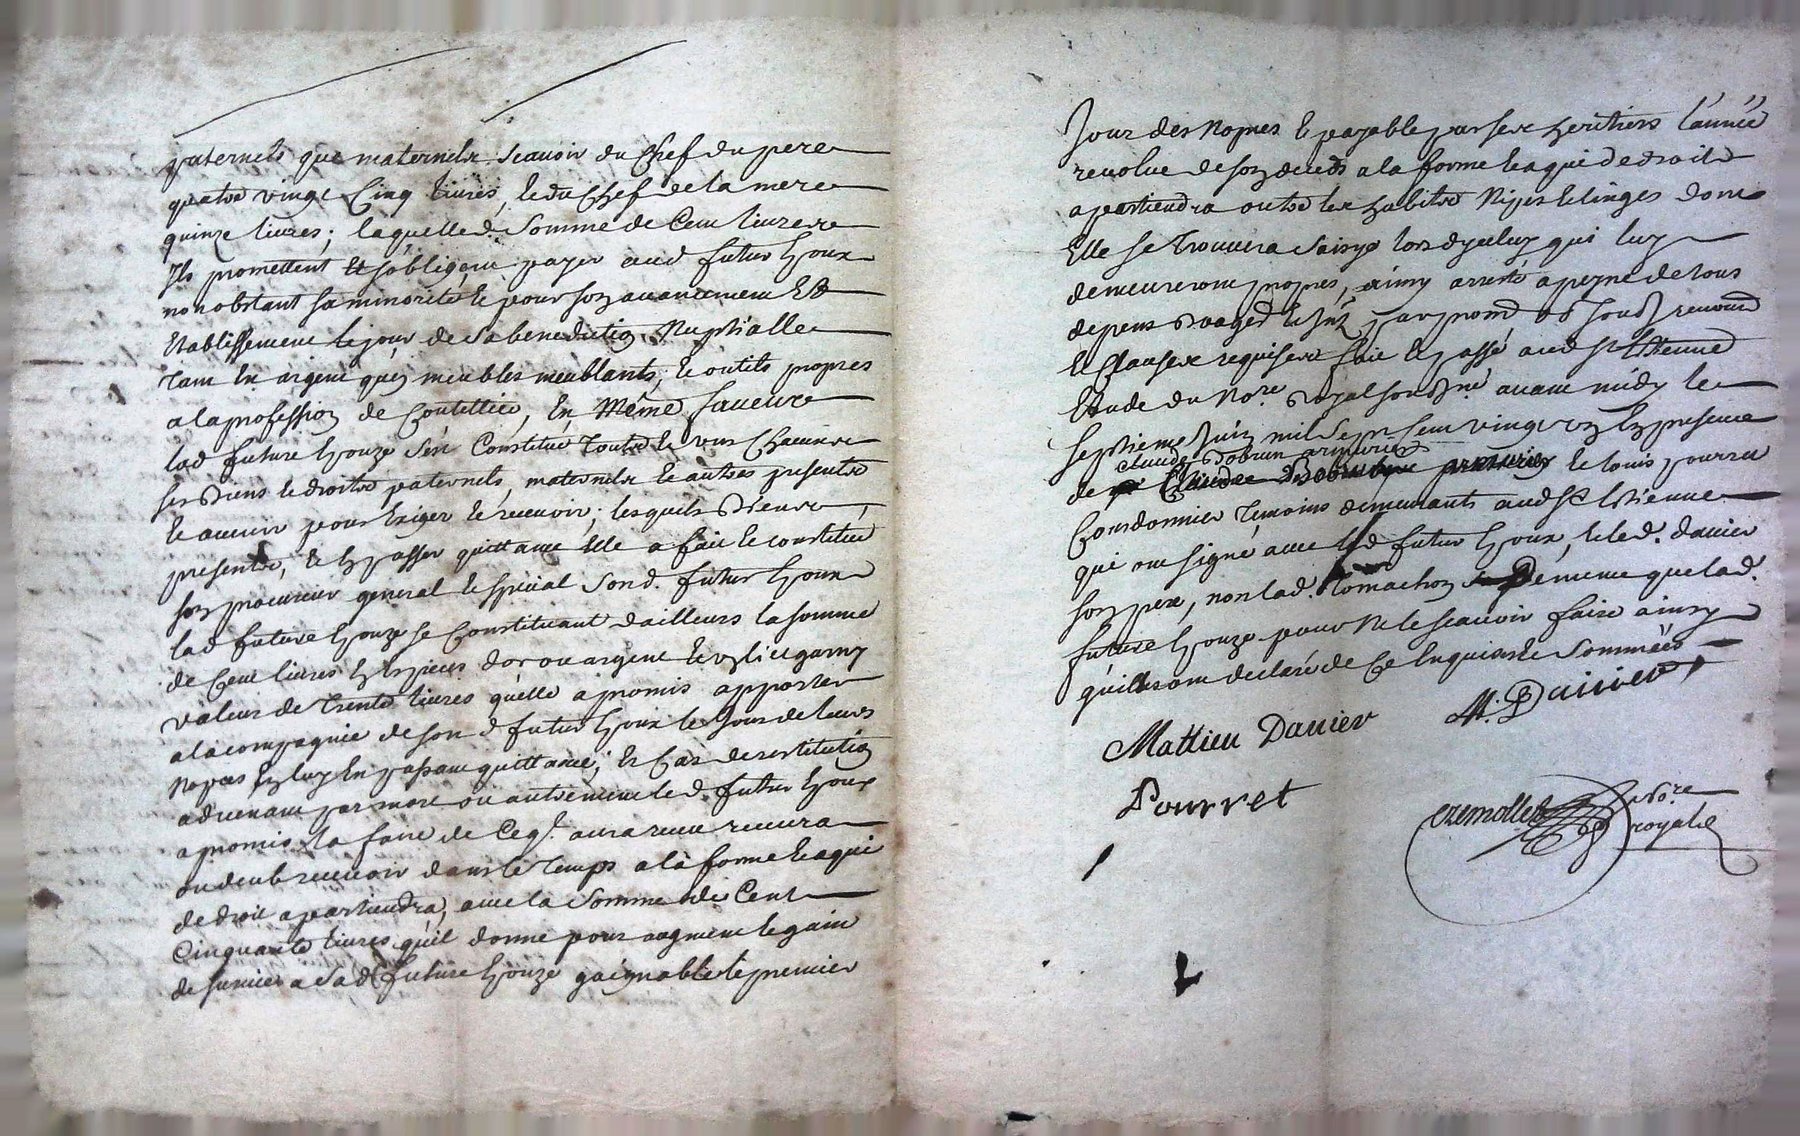 paternels que maternels scavoir du Chef du pere
quatre vingt Cinq livres, et du Chef de la mere
quinze livres; laquelle d. Somme de Cent livres
Ils promettent et sobligent payer aud futur Epoux
nonobstant sa minorité et pour son avancement et
Etablissement le jour de sa benediction Nuptialle
tant en argent qu'en meubles meublants, et outils propres
a la profession de Coutellier, En Même faveur
lad future Epouze s'est Constitué toutes et uns Chacuns
ses biens et droits paternels, maternels et autres presents
et avenir pour Exiger et recevoir, lesquels biens
presents, et En passer quittance Elle a fait et constitué
son procureur general et special sond. futur Epoux
lad future Epouze se Constituant d'ailleurs la somme
de Cent livres En Especes d'or ou argent et un lict garny
valeur de trente livres qu'elle a promis apporter
a la compagnie de son d futur Epoux le Jour de leurs
Nopces En luy En passant quittance; Et Cas de restitution
advenant par mort ou autrement led. futur Epoux
a promis la faire de Ce qJ. aura receu recevra
ou deub recevoir dans le temps a la forme et a qui
de droit apartiendra, avec la Somme de Cent
Cinquante livres qu'il donne pour augment et gain
de survie a sad future Epouze gaignable le premier
Jour des Nopces et payable par ses heritiers l'année
revolue de son deceds a la forme et a qui de droit
apartiendra outre les habits Nipes et linges dont
Elle se trouvera saisye lors d'yceluy qui luy
demeureront propres, ainsy arresté a peyne de tous
depens
et Clauses requises fait et passé aud St Etienne
Etude du No.re royal sousne. avant midy le
septieme Juin mil sept Cent vingt un En presence
Claude armurier
de Claude armurier et Louis pourret
Cordonnier temoins demeurants aud St Etienne
qui ont signé avec led futur Epoux, et led. Danier
son pere, non lad. tomachon de meme que lad.
future Epouze pour Ne le scavoir faire ainsy
qu'ills ont declaré de Ce Enquis et Sommées
Mattieu Danier M. Danier
Pourret
No.re
royal